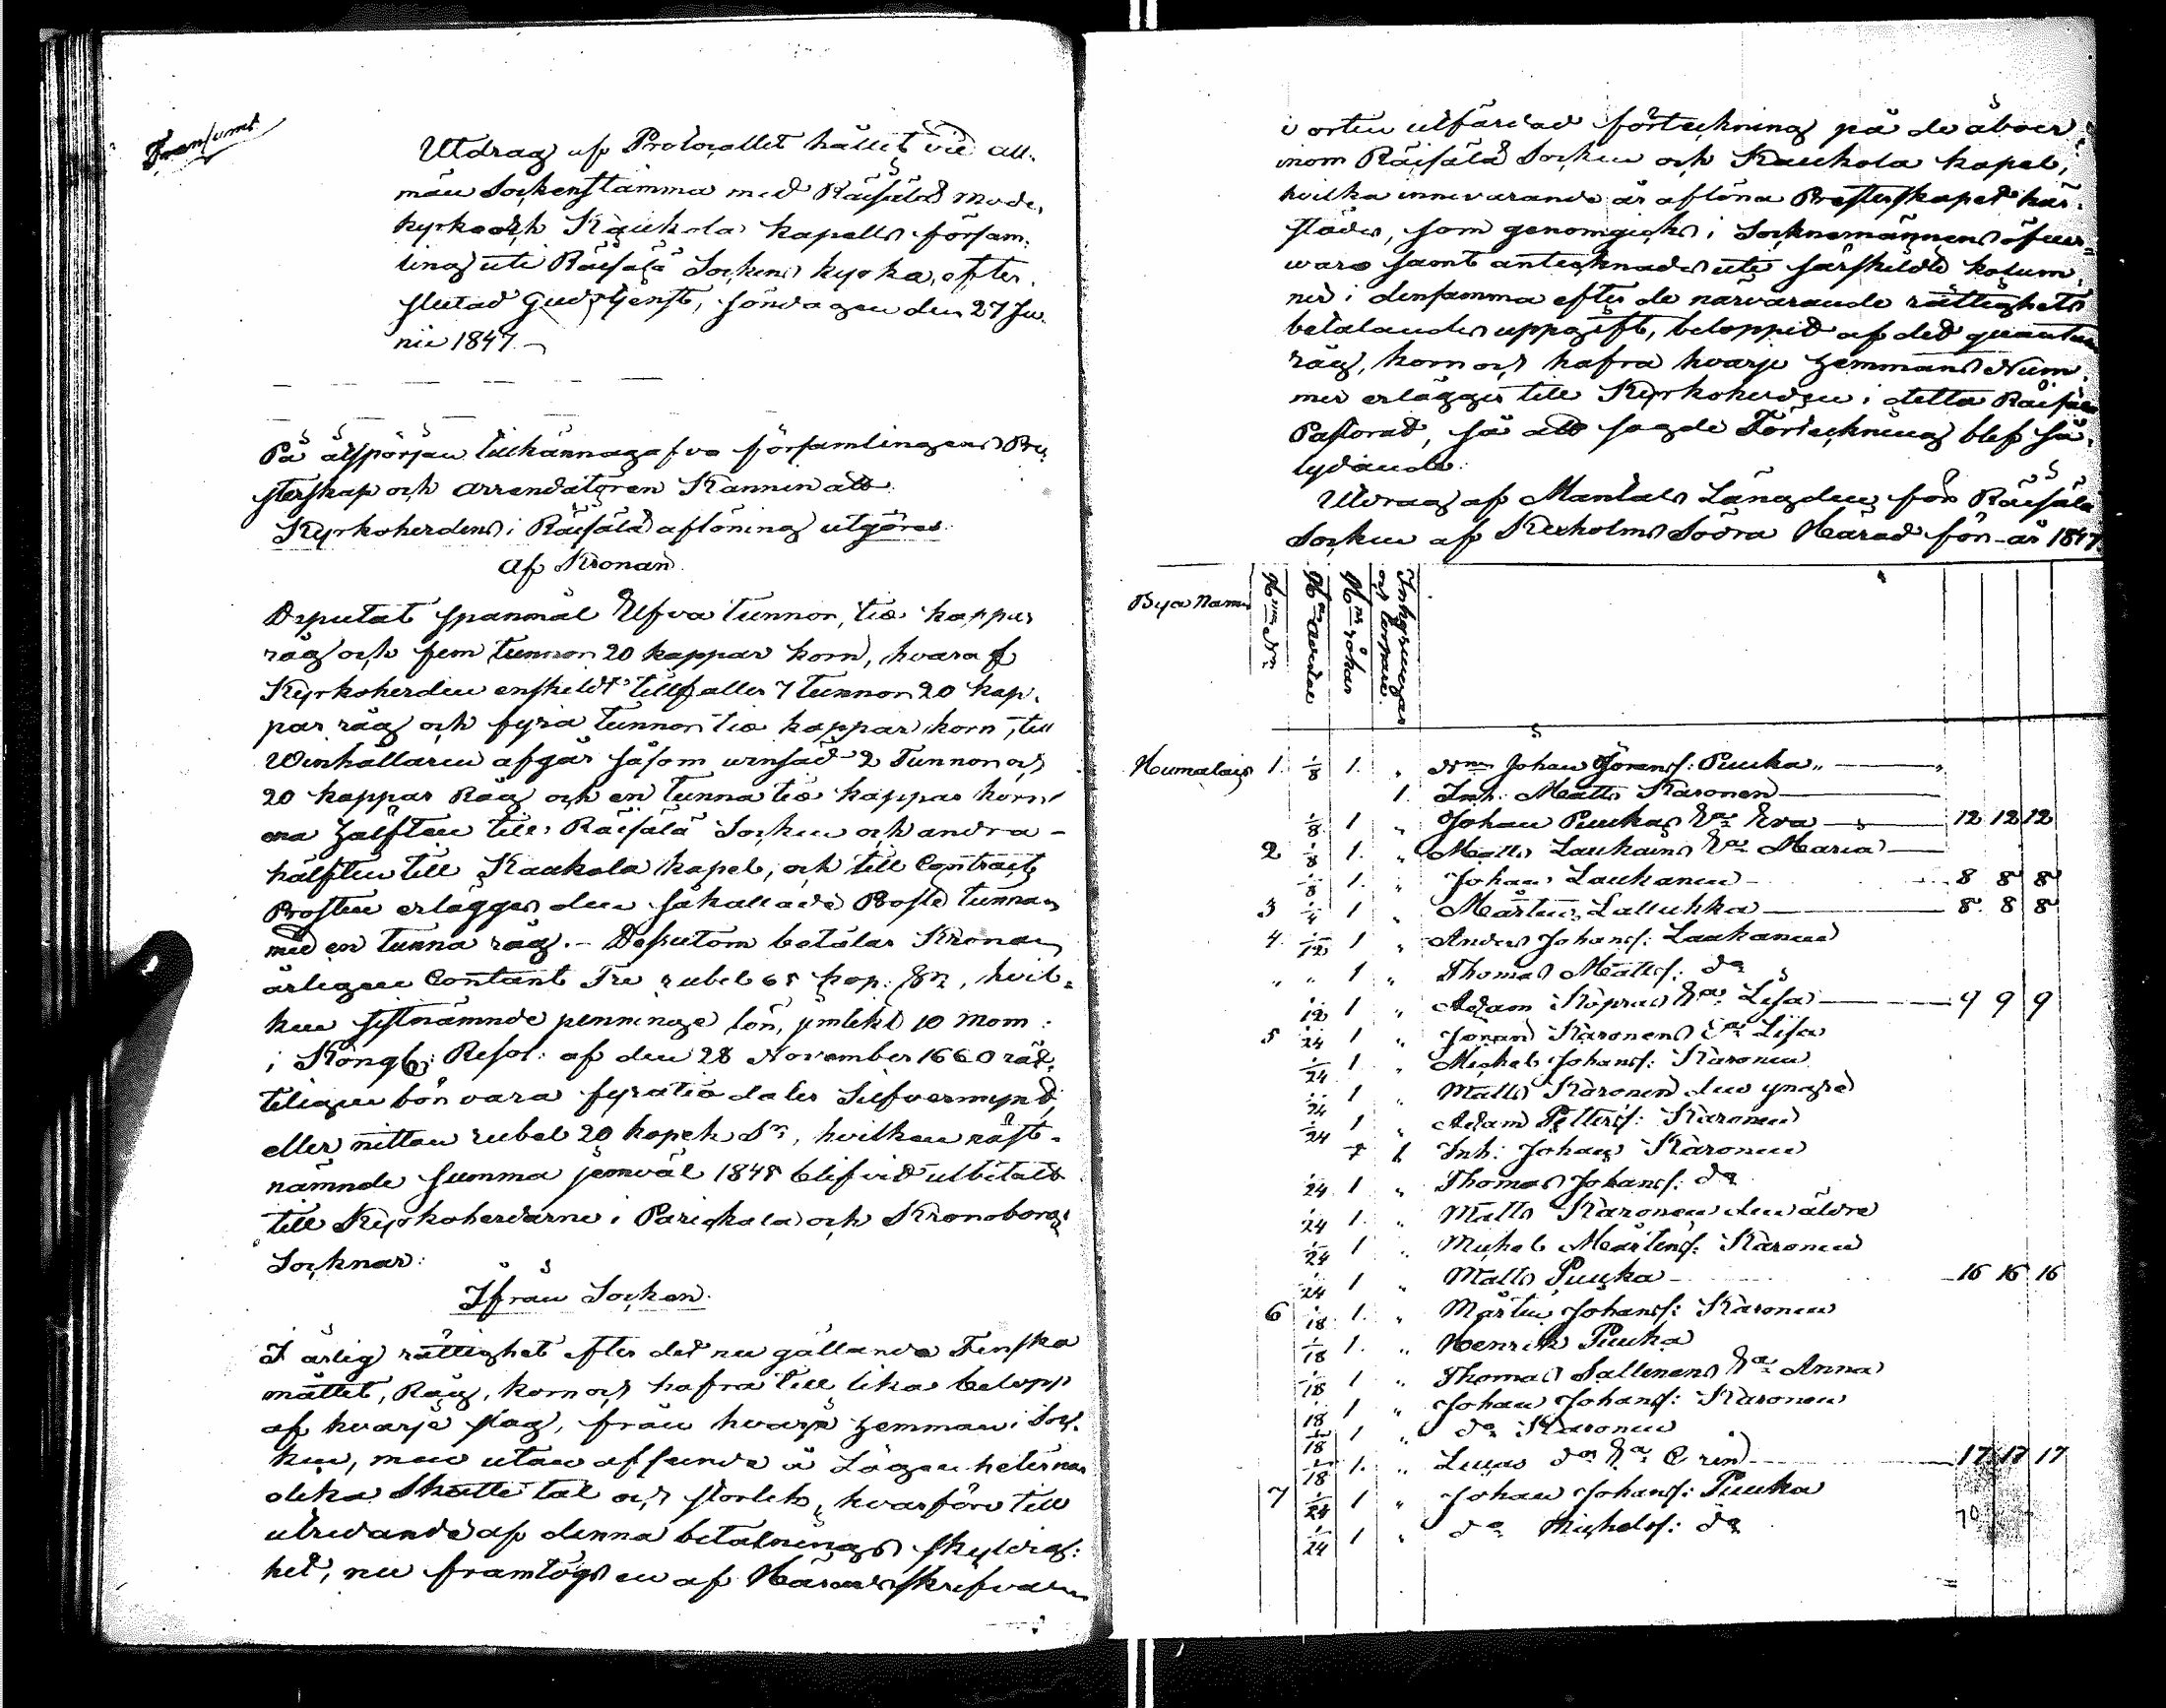 Transsumt
Utdrag af Protocollet hållet vid all-
män Sockenstämma med Räisälä Moder
kyrko och Kaukola kapells försam-
ling uti Räisälä Sockens kyrka, efter
slutad Gudstjenst, söndagen den 27 Ju-
nii 1847.
På åtspörjan tillkännagafvo församlingens Pre-
sterskap och arrendatoren Kanninen att
Kyrkoherdens i Räisälä aflöning utgöres
af Kronan
Deputat spanmål Elfva tunnor, tio kappar
råg och fem tunnor 20 kappar korn, hvaraf
Kyrkoherden enskildt tillfaller 7 tunnor 20 kap-
par råg och fyra tunnor tio kappar korn, till
Winhållaren afgår såsom winsäd 2 Tunnor och
20 kappar Råg och en tunna tio kappar korn
ena hälften till Räisälä Socken och andra
hälften till Kaukola kapel, och till Contracts
Prosten erlägges den såkallade Prosta tunnan
med en tunna råg. - Dessutom betalar Kronan
årligen Contant Tre rubel 65 kop. Sr, hvil-
ken sistnämnde penninge lön, jemlikt 10 Mom:
i Kongl: Resol: af den 28 November 1660 rät-
teligen bör vara fyratio daler Silfvermynt,
eller nitton rubel 20 kopek Sr, hvilken näst-
nämnde summa jemväl 1845 blifvit utbetald
till Kyrkoherdarne i Parikkala och Kronoborgs
Socknar:
Ifrån Socken.
I årlig rättighet efter det nu gällande Finska
måttet, Råg, korn och hafra till lika belopp
af hvarje slag, från hvarje hemman i Soc-
ken, men utan afseende å Lägenheternas
olika Skattetal och storlek, hvarföre till
utredande af denna betalnings skyldig-
het, nu framtogs en af Häradsskrifvaren
i orten utfärdad förteckning på de åboer
inom Räisälä Socken och Kaukola kapel,
hvilka innevarande år aflöna Presterskapet här-
städes, som genomgicks i Sockenemännens öfver-
waro samt antecknades uti särskildte kolum-
ner i densamma efter de närvarande rättighets
betalandes uppgift, beloppet af det quantum
råg, korn och hafra hvarje hemmans Num-
mer erlägger till Kyrkoherden i detta Räisälä
Pastorat, så att sagde Förteckning blef så-
lydande:
Utdrag af Mantals Längden för Räisälä
Socken af Kexholms Södra Härad för år 1847.
Bya Namn Hmns No Hmns andel Hmns rökar Inhysningar och torpare
Humalais 1. 1/8 1. „ Nm Johan Göranss: Puukka „
1. Inh: Matts Karonen
1/8 1 „ Johan Puukas Ea Eva 12 12 12
2 1/8 1. „ Matts Laukains Ea Maria
1/8 1. „ Johan Laukanen 8 8 8
3 1/4 1 „ Mårten Lallukka 8 8 8
4. 1/12 1 „ Anders Johanss: Laukanen
„ „ 1 „ Thomas Mattss: do
1/12 1 „ Adam Kopras Ea Lisa 9 9 9
5 1/24 1 „ Jöran Karonens Ea Lisa
1/24 1 „ Michel Johanss: Karonen
1/24 1 „ Matts Karonen den yngre
1/24 1 „ Adam Petterss: Karonen
1 Inh: Johan Karonen
1/24 1 „ Thomas Johanss: do
1/24 1. „ Matts Karonen den äldre
1/24 1 „ Michel Mårtenss: Karonen
1/24 1 „ Matts Puukka 16 16 16
6 1/18 1. „ Mårten Johanss: Karonen
1/18 1. „ Henrik Puukka
1/18 1 „ Thomas Sallinens Ea Anna
1/18 1 „ Johan Johanss: Karonen
1/18 1 „ do Karonen
1/18 1. „ Lucas dos Ea 17 17 17
7 1/24 1 „ Johan Johanss: Puukka
1/24 1 „ do Michelss: do
70